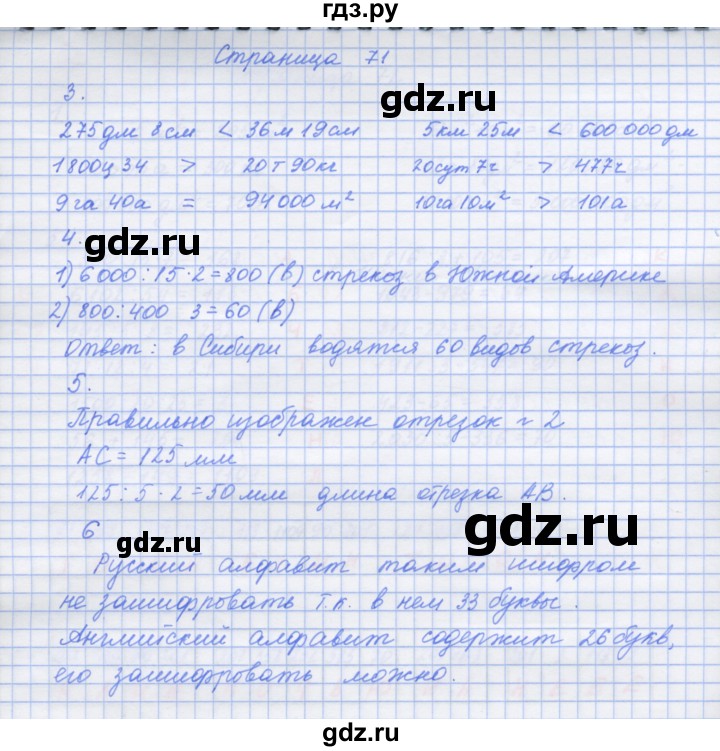 гдз.ру
Страница 71
3.
275дм 8см < 36м 19см 5км 25м < 600 000дм
1800ц 34 > 20т 90кг 20сут 7ч > 477ч
9га 40а = 94000м² 10га 10м² > 101а
4.
1) 6000:15·2=800 (в) стрекоз в Южной Америке
2) 800:400 3=60 (в)
Ответ: в Сибири водятся 60 видов стрекоз.
5.
Правильно изображен отрезок 2
АС = 125 мм
125:5·2=50мм длина отрезка АВ.
6
Русский алфавит таким шифром
не зашифровать т.к. в нем 33 буквы.
Английский алфавит содержит 26 букв,
его зашифровать можно.
gdz.ru
gdz.ru
gdz.ru
gdz.ru
gdz.ru
gdz.ru
gdz.ru